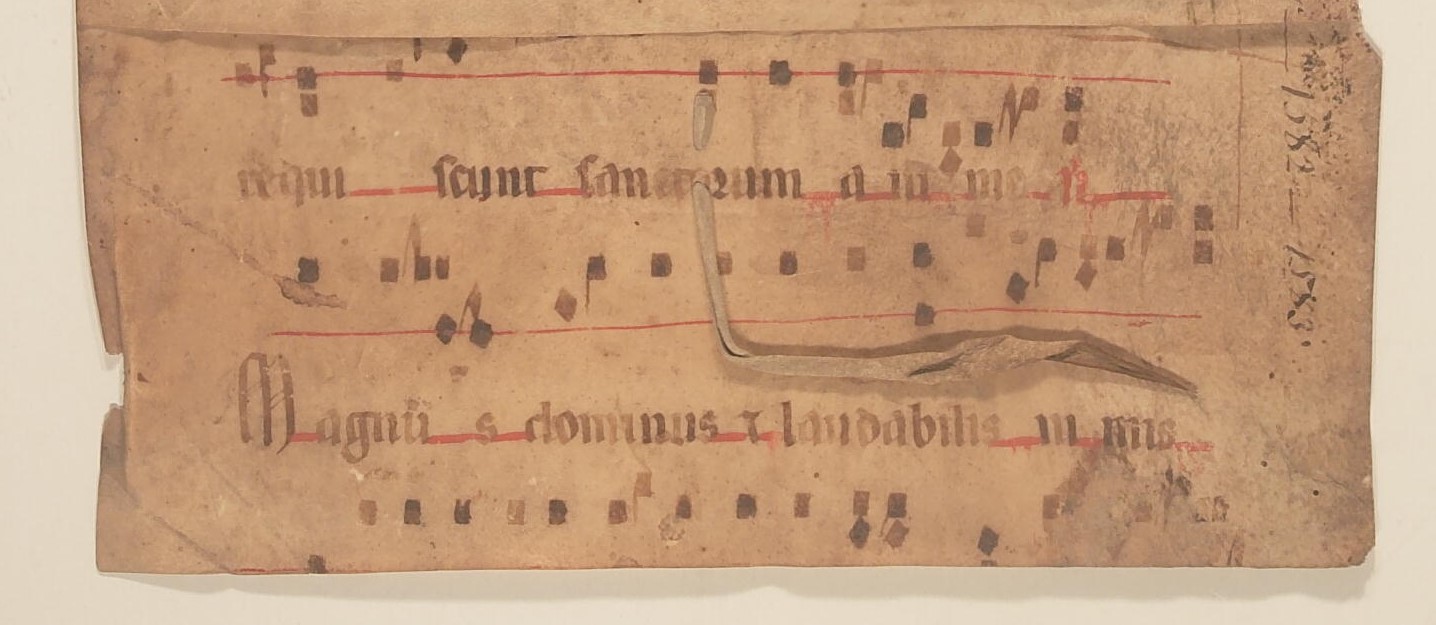 requi scunt sanctorum a ni me
Magnū s dominus ⁊ laudabilis in mis
1582 – 1583.